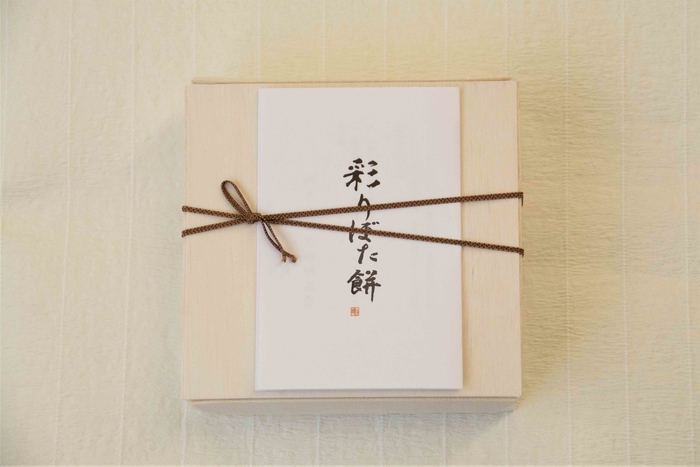 彩りぼた餅